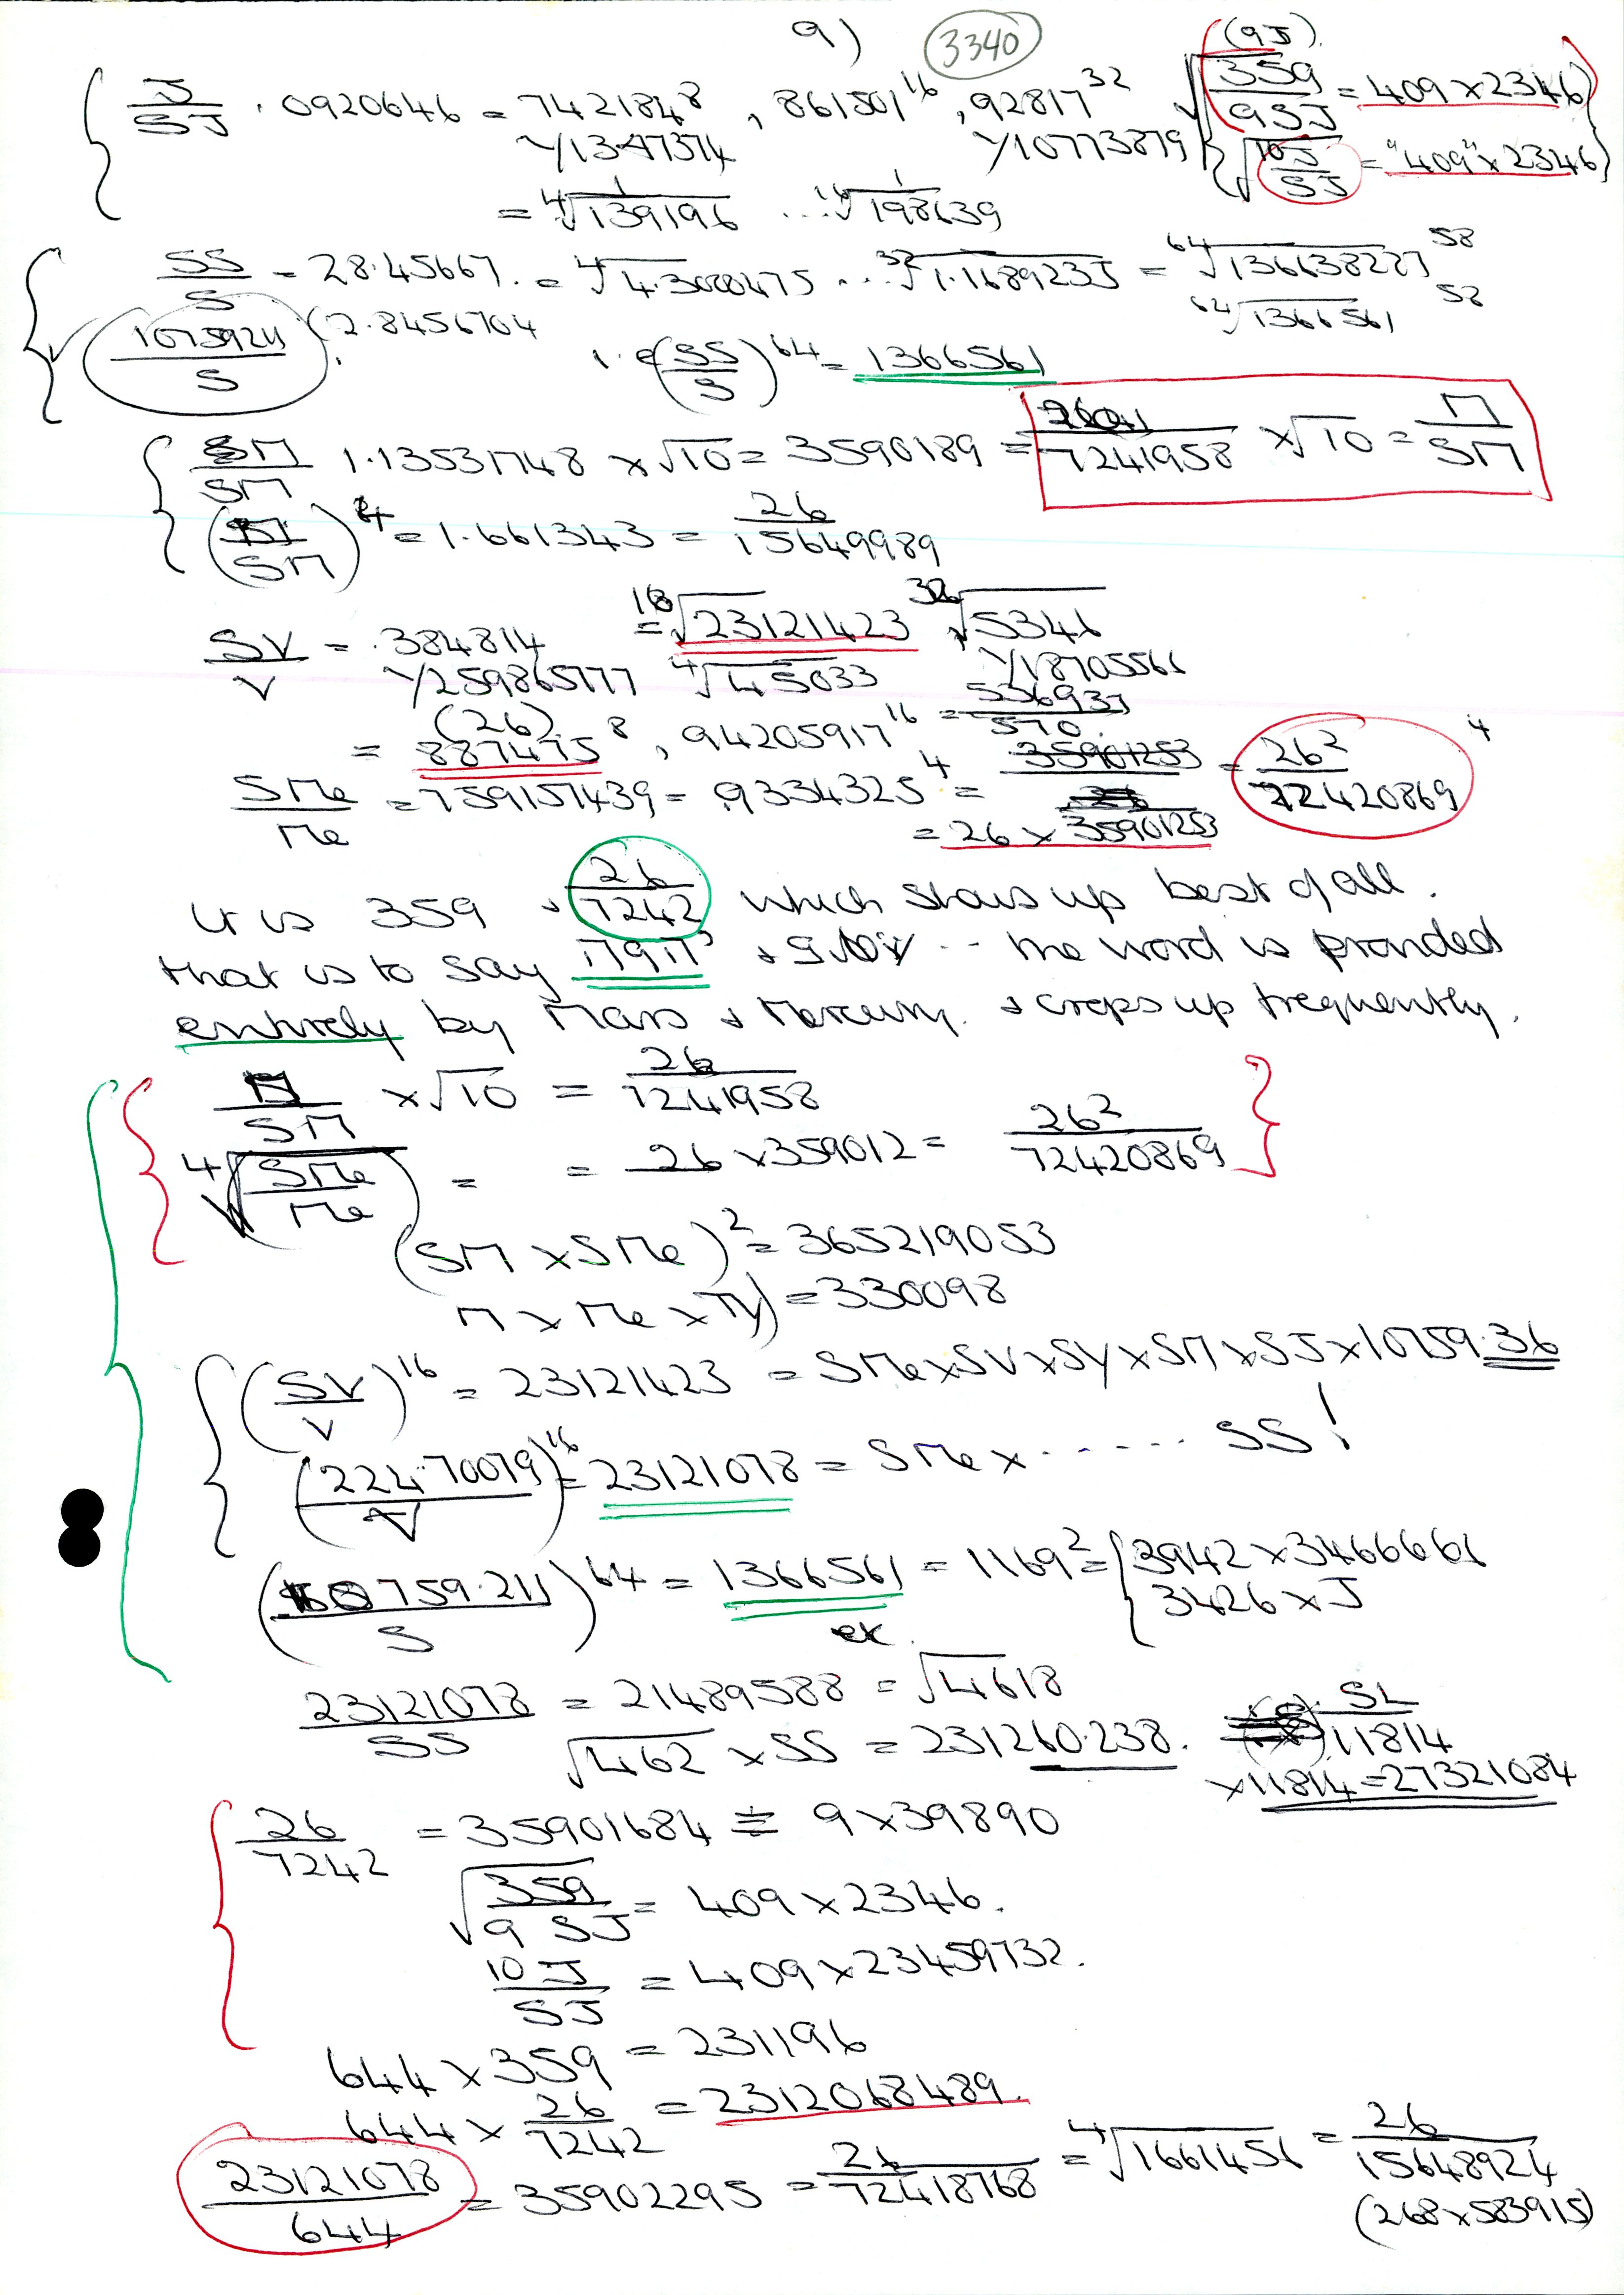 9) 3340
J/SJ .0920646 = 7421848⁸, 861501¹⁶, 92817³²
Y/13.47374 Y/10773879
(9J)
√359/9SJ = 409 × 2346
√10J/SJ = "409" × 2346
= ⁴√139196 ... ¹⁶√198639
SS/S = 28.45667. = ⁴√4.3000475 ... ³²√1.1689233 = ⁶⁴√136638227 58
⁶⁴√1366561 58
1075921/S (2.8456704
i.e (SS/S)⁶⁴ = 1366561
M/SM 1.13531748 × √10 = 3590189 = 26/7241958 × √10 = M/SM
(M/SM)⁴ = 1.661343 = 26/15649989
SV/V = .384814 = ¹⁶√23121423 ³²√5346
Y/259865777 ⁴√45033 Y/18705561
(26) = 887475⁸, 94205917¹⁶ = 536937/570.
SMe/Me = 759157439 = .9334325⁴ = 26²/72420869 ⁴
= 26 × 35901253
it is 359 + 26/7242 which shows up best of all.
that is to say 17917 + ... the word is provided
entirely by Mars + Mercury. + crops up frequently.
M/SM × √10 = 26/7241958
⁴√(SMe/Me) = = 26 × 359012 = 26²/72420869
(SM × SMe)² = 365219053
M × Me × Ty) = 330098
(SV/V)¹⁶ = 23121423 = SMe × SV × SY × SM × SJ × 10759.36
(224.70079/V)¹⁶ = 23121078 = SMe × ...... SS!
(10759.211/S)⁶⁴ = 1366561 = 1169² = {3942 × 3466661
3426 × J
ex.
23121078/SS = 21489588 = √4618
√462 × SS = 231260.238.
SL
11814
× 11814 = 27321084
26/7242 = 35901684 = 9 × 39890
√359/9 SJ = 409 × 2346.
10 J/SJ = 409 × 23459732.
644 × 359 = 231196
644 × 26/7242 = 2312068489.
23121078/644 = 35902295 = 26/72418768 = ⁴√1661456 = 26/15648924
(268 × 583915)